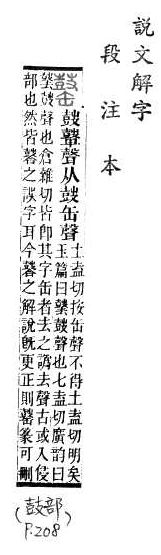 說文解字
段注本
鼓鼙聲从鼓缶聲
土盍切按缶聲不得土盍切明矣
玉篇曰鼓聲也七盍切廣韵曰
鼓聲也倉雜切皆卽其字缶者去之譌去聲古或入侵
部也然皆之誤字耳今之解說旣更正則篆可刪
(鼓部)
P.208